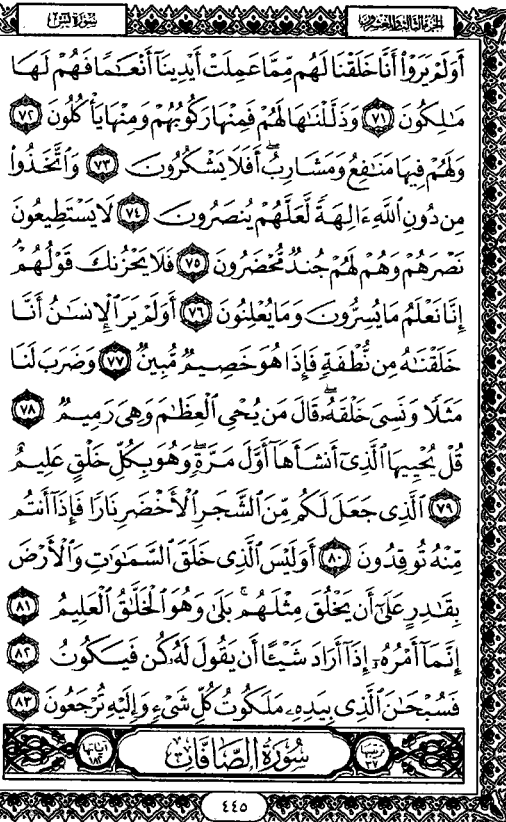 سُورَةُ يسٓ
الجُزءُ الثَّالِثُ وَالعِشْرُونَ
أَوَلَمْ يَرَوْا۟ أَنَّا خَلَقْنَا لَهُم مِّمَّا عَمِلَتْ أَيْدِينَآ أَنْعَـٰمًا فَهُمْ لَهَا
مَـٰلِكُونَ ٧١ وَذَلَّلْنَـٰهَا لَهُمْ فَمِنْهَا رَكُوبُهُمْ وَمِنْهَا يَأْكُلُونَ ٧٢
وَلَهُمْ فِيهَا مَنَـٰفِعُ وَمَشَارِبُ ۖ أَفَلَا يَشْكُرُونَ ٧٣ وَٱتَّخَذُوا۟
مِن دُونِ ٱللَّهِ ءَالِهَةً لَّعَلَّهُمْ يُنصَرُونَ ٧٤ لَا يَسْتَطِيعُونَ
نَصْرَهُمْ وَهُمْ لَهُمْ جُندٌ مُّحْضَرُونَ ٧٥ فَلَا يَحْزُنكَ قَوْلُهُمْ ۘ
إِنَّا نَعْلَمُ مَا يُسِرُّونَ وَمَا يُعْلِنُونَ ٧٦ أَوَلَمْ يَرَ ٱلْإِنسَـٰنُ أَنَّا
خَلَقْنَـٰهُ مِن نُّطْفَةٍ فَإِذَا هُوَ خَصِيمٌ مُّبِينٌ ٧٧ وَضَرَبَ لَنَا
مَثَلًا وَنَسِىَ خَلْقَهُۥ ۖ قَالَ مَن يُحْىِ ٱلْعِظَـٰمَ وَهِىَ رَمِيمٌ ٧٨
قُلْ يُحْيِيهَا ٱلَّذِىٓ أَنشَأَهَآ أَوَّلَ مَرَّةٍ ۖ وَهُوَ بِكُلِّ خَلْقٍ عَلِيمٌ
٧٩ ٱلَّذِى جَعَلَ لَكُم مِّنَ ٱلشَّجَرِ ٱلْأَخْضَرِ نَارًا فَإِذَآ أَنتُم
مِّنْهُ تُوقِدُونَ ٨٠ أَوَلَيْسَ ٱلَّذِى خَلَقَ ٱلسَّمَـٰوَٰتِ وَٱلْأَرْضَ
بِقَـٰدِرٍ عَلَىٰٓ أَن يَخْلُقَ مِثْلَهُم ۚ بَلَىٰ وَهُوَ ٱلْخَلَّـٰقُ ٱلْعَلِيمُ ٨١
إِنَّمَآ أَمْرُهُۥٓ إِذَآ أَرَادَ شَيْـًٔا أَن يَقُولَ لَهُۥ كُن فَيَكُونُ ٨٢
فَسُبْحَـٰنَ ٱلَّذِى بِيَدِهِۦ مَلَكُوتُ كُلِّ شَىْءٍ وَإِلَيْهِ تُرْجَعُونَ ٨٣
ترتيبها ٣٧ سُورَةُ الصَّافَّاتِ آياتها ١٨٢
٤٤٥